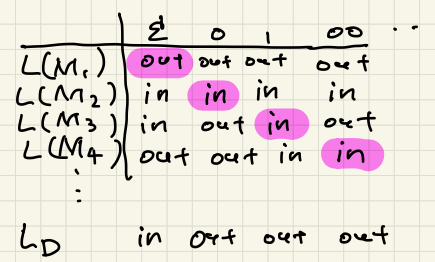 Σ 0 1 00 ..
L(M₁) out out out out
L(M₂) in in in in
L(M₃) in out in out
L(M₄) out out in in
⋮
L_D in out out out